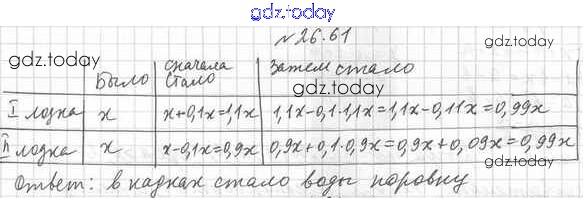 gdz.today
№26.61
gdz.today gdz.today
Было сначала стало Затем стало
I лодка x x+0,1x=1,1x 1,1x-0,1·1,1x=1,1x-0,11x=0,99x
II лодка x x-0,1x=0,9x 0,9x+0,1·0,9x=0,9x+0,09x=0,99x
gdz.today
gdz.today
Ответ: в кадках стало воды поровну